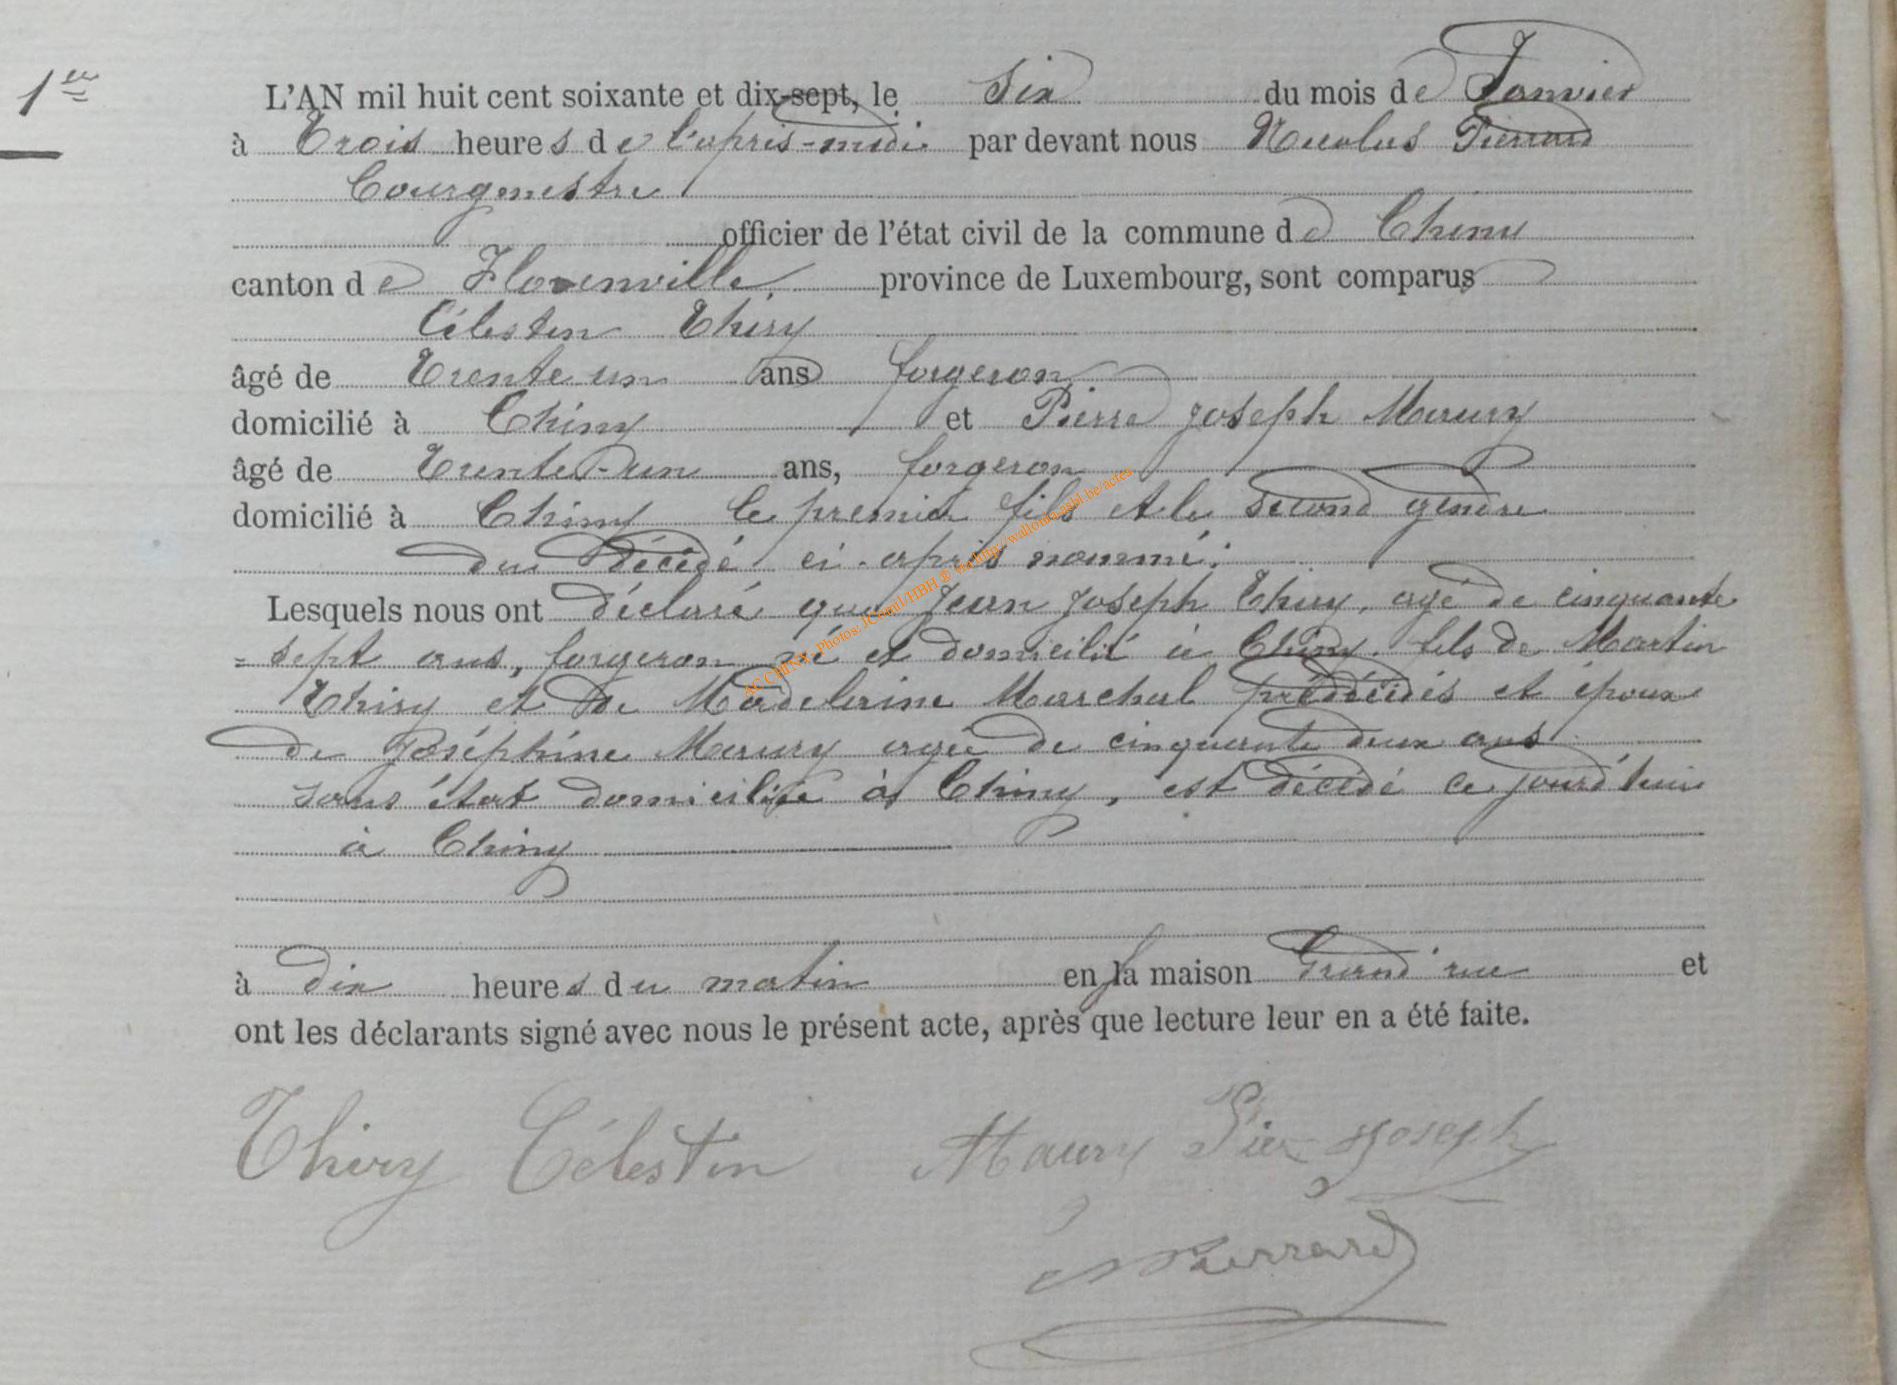 1er
L'AN mil huit cent soixante et dix-sept, le six du mois de Janvier
à Trois heures de l'après-midi par devant nous Nicolas Pierrard
Bourgmestre
officier de l'état civil de la commune de Chiny
canton de Florenville. province de Luxembourg, sont comparus
Célestin Thiry
âgé de Trente un ans forgeron
domicilié à Chiny et Pierre Joseph Maury
âgé de Trente-un ans, forgeron
domicilié à Chiny le premier fils et le second gendre
du décédé ci-après nommé.
Lesquels nous ont déclaré que Jean Joseph Thiry, agé de cinquante
= sept ans, forgeron né et domicilié à Chiny. fils de Martin
Thiry et de Madelaine Marchal prédécédés et époux
de Joséphine Maury agée de cinquante deux ans
sans état domiciliée à Chiny, est décédé ce jourd'hui
à Chiny
à dix heures du matin en sa maison Grand'rue et
ont les déclarants signé avec nous le présent acte, après que lecture leur en a été faite.
Thiry Célestin Maury Pier Joseph
NPierrard
AC CHINY, Photos: JCamil/HBH ® via http://wallonia.asbl.be/actes